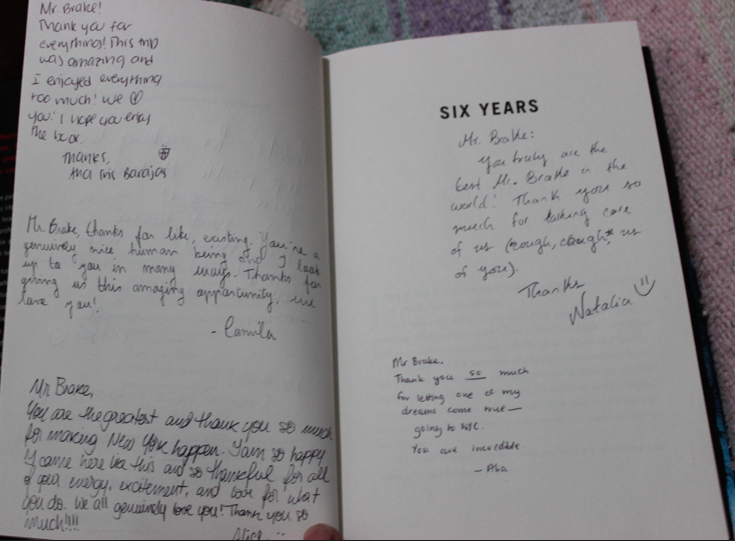 Mr. Brake!
Thank you for
everything! This trip
was amazing and
I enjoyed everything
too much! We ♡
you! I hope you enjoy
the book.
Thanks,
Ana Iris Barajas
Mr. Brake, thanks for like, existing. You're a
genuinely nice human being and I look
up to you in many ways. Thanks for
giving us this amazing opportunity, we
love you!
- Camila
Mr Brake,
You are the greatest and thank you so much
for making New York happen. I am so happy
I came here like this and so thankful for all
of your energy, excitement, and love for what
you do. We all genuinely love you! Thank you so
much!!!!
Alice
SIX YEARS
Mr. Brake:
You truly are the
best Mr. Brake in the
world! Thank you so
much for taking care
of us (cough, cough, us
of you).
Thanks
Natalia
Mr Brake,
Thank you so much
for letting one of my
dreams come true—
going to NYC.
You are incredible
-